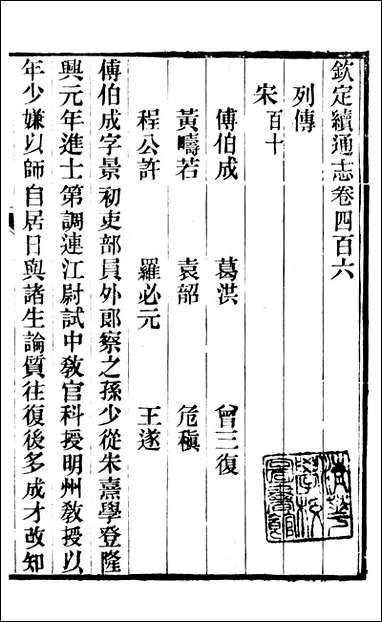 欽定續通志卷四百六
列傳
宋百十
傅伯成 葛洪 曾三復
黃疇若 袁韶 危稹
程公許 羅必元 王遂
傅伯成字景初吏部員外郎察之孫少從朱熹學登隆
興元年進士第調連江尉試中敎官科授明州敎授以
年少嫌以師自居日與諸生論質往復後多成才改知